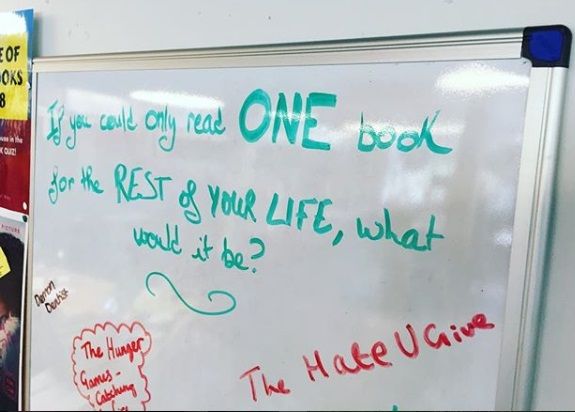 E OF
OOKS
8
If you could only read ONE book
for the REST of YOUR LIFE, what
would it be?
Demon
Dentist
The Hunger
Games -
Catching
The Hate U Give